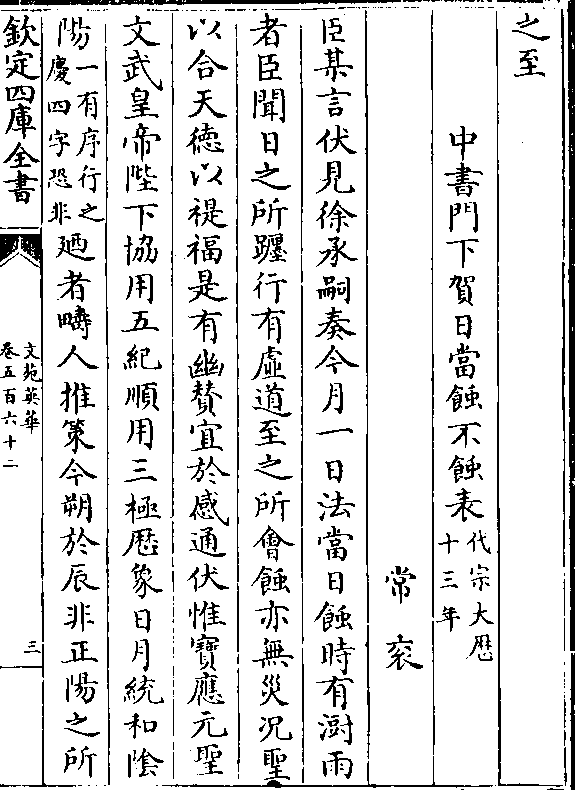 之至
中書門下賀日當蝕不蝕表代宗大厯
十三年
常衮
臣某言伏見徐承嗣奏今月一日法當日蝕時有澍雨
者臣聞日之所躔行有虛道至之所會蝕亦無災況聖
以合天德以禔福是有幽贊宜於感通伏惟寶應元聖
文武皇帝陛下協用五紀順用三極厯象日月統和陰
陽一有序行之
慶四字恐非廼者疇人推策今朔於辰非正陽之所
欽定四庫全書
文苑英華
卷五百六十二
三